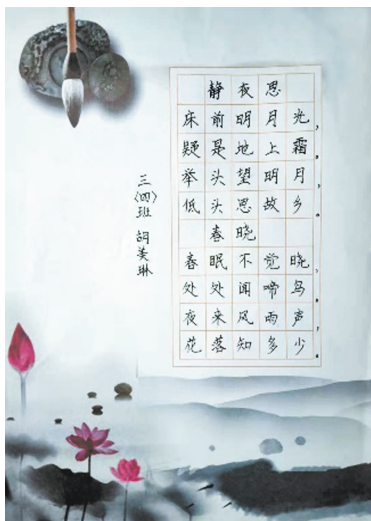 静夜思
床前明月光，
疑是地上霜。
举头望明月，
低头思故乡。
春晓
春眠不觉晓，
处处闻啼鸟。
夜来风雨声，
花落知多少。
三〈四〉班 胡美琳